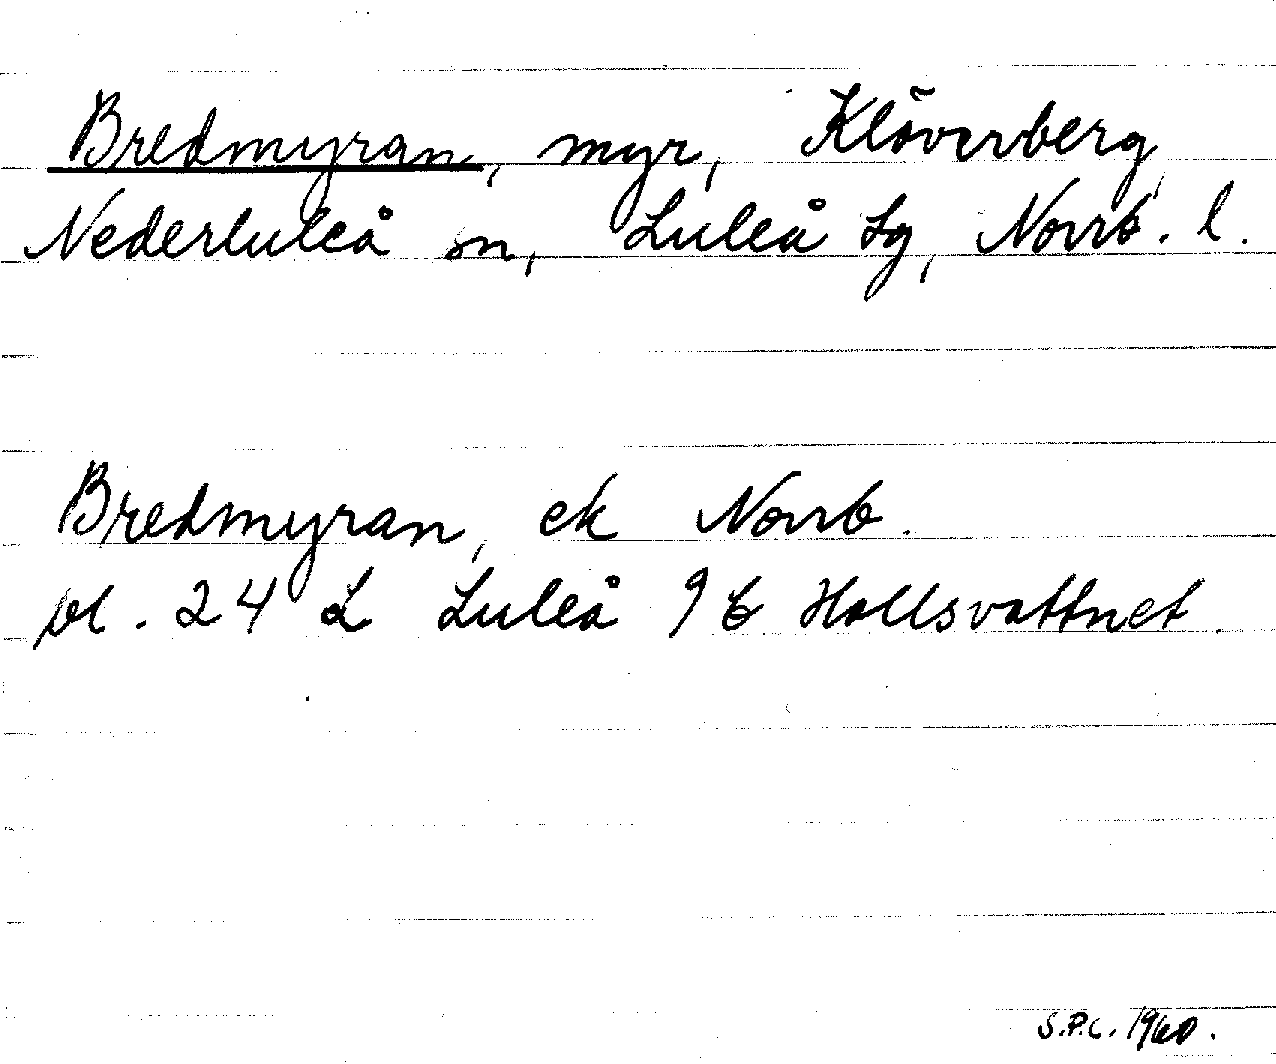 Bredmyran, myr, Klöverberg,
Nederluleå sn, Luleå tg, Norrb. l.
Bredmyran, ek Norrb.
bl. 24 L Luleå 9 b Hallsvattnet.
S.P.C. 1960.